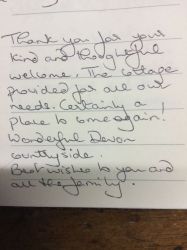 Thank you for your
kind and thoughtful
welcome. The cottage
provided for all our
needs. Certainly a
place to come again!
Wonderful Devon
countryside.
Best wishes to you and
all the family.